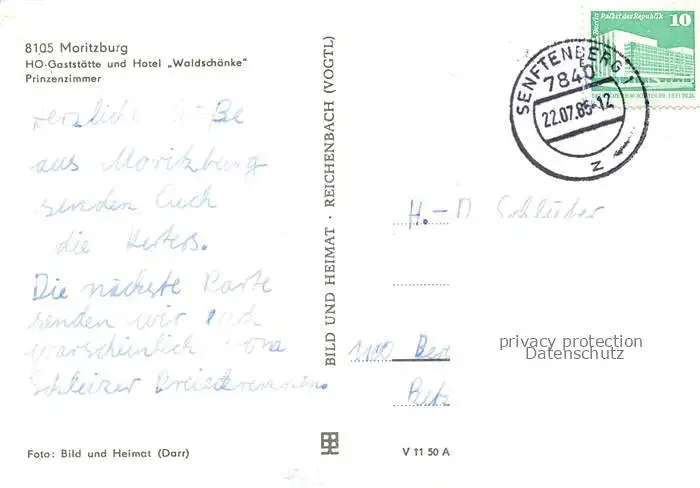 8105 Moritzburg
HO-Gaststätte und Hotel „Waldschänke“
Prinzenzimmer
aus Moritzburg
senden Euch
die
Die nächste Karte
senden wir Euch
warscheinlich
Schleizer Dreiecksrennen.
Foto: Bild und Heimat (Darr)
BILD UND HEIMAT · REICHENBACH (VOGTL)
V 11 50 A
Berlin Palast der Republik 10
SENFTENBERG 1
7840
22.07.85-12
z
H.-D Schlüter
privacy protection
Datenschutz